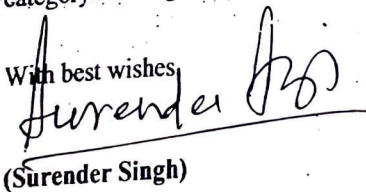 category
With best wishes,
Surender
(Surender Singh)